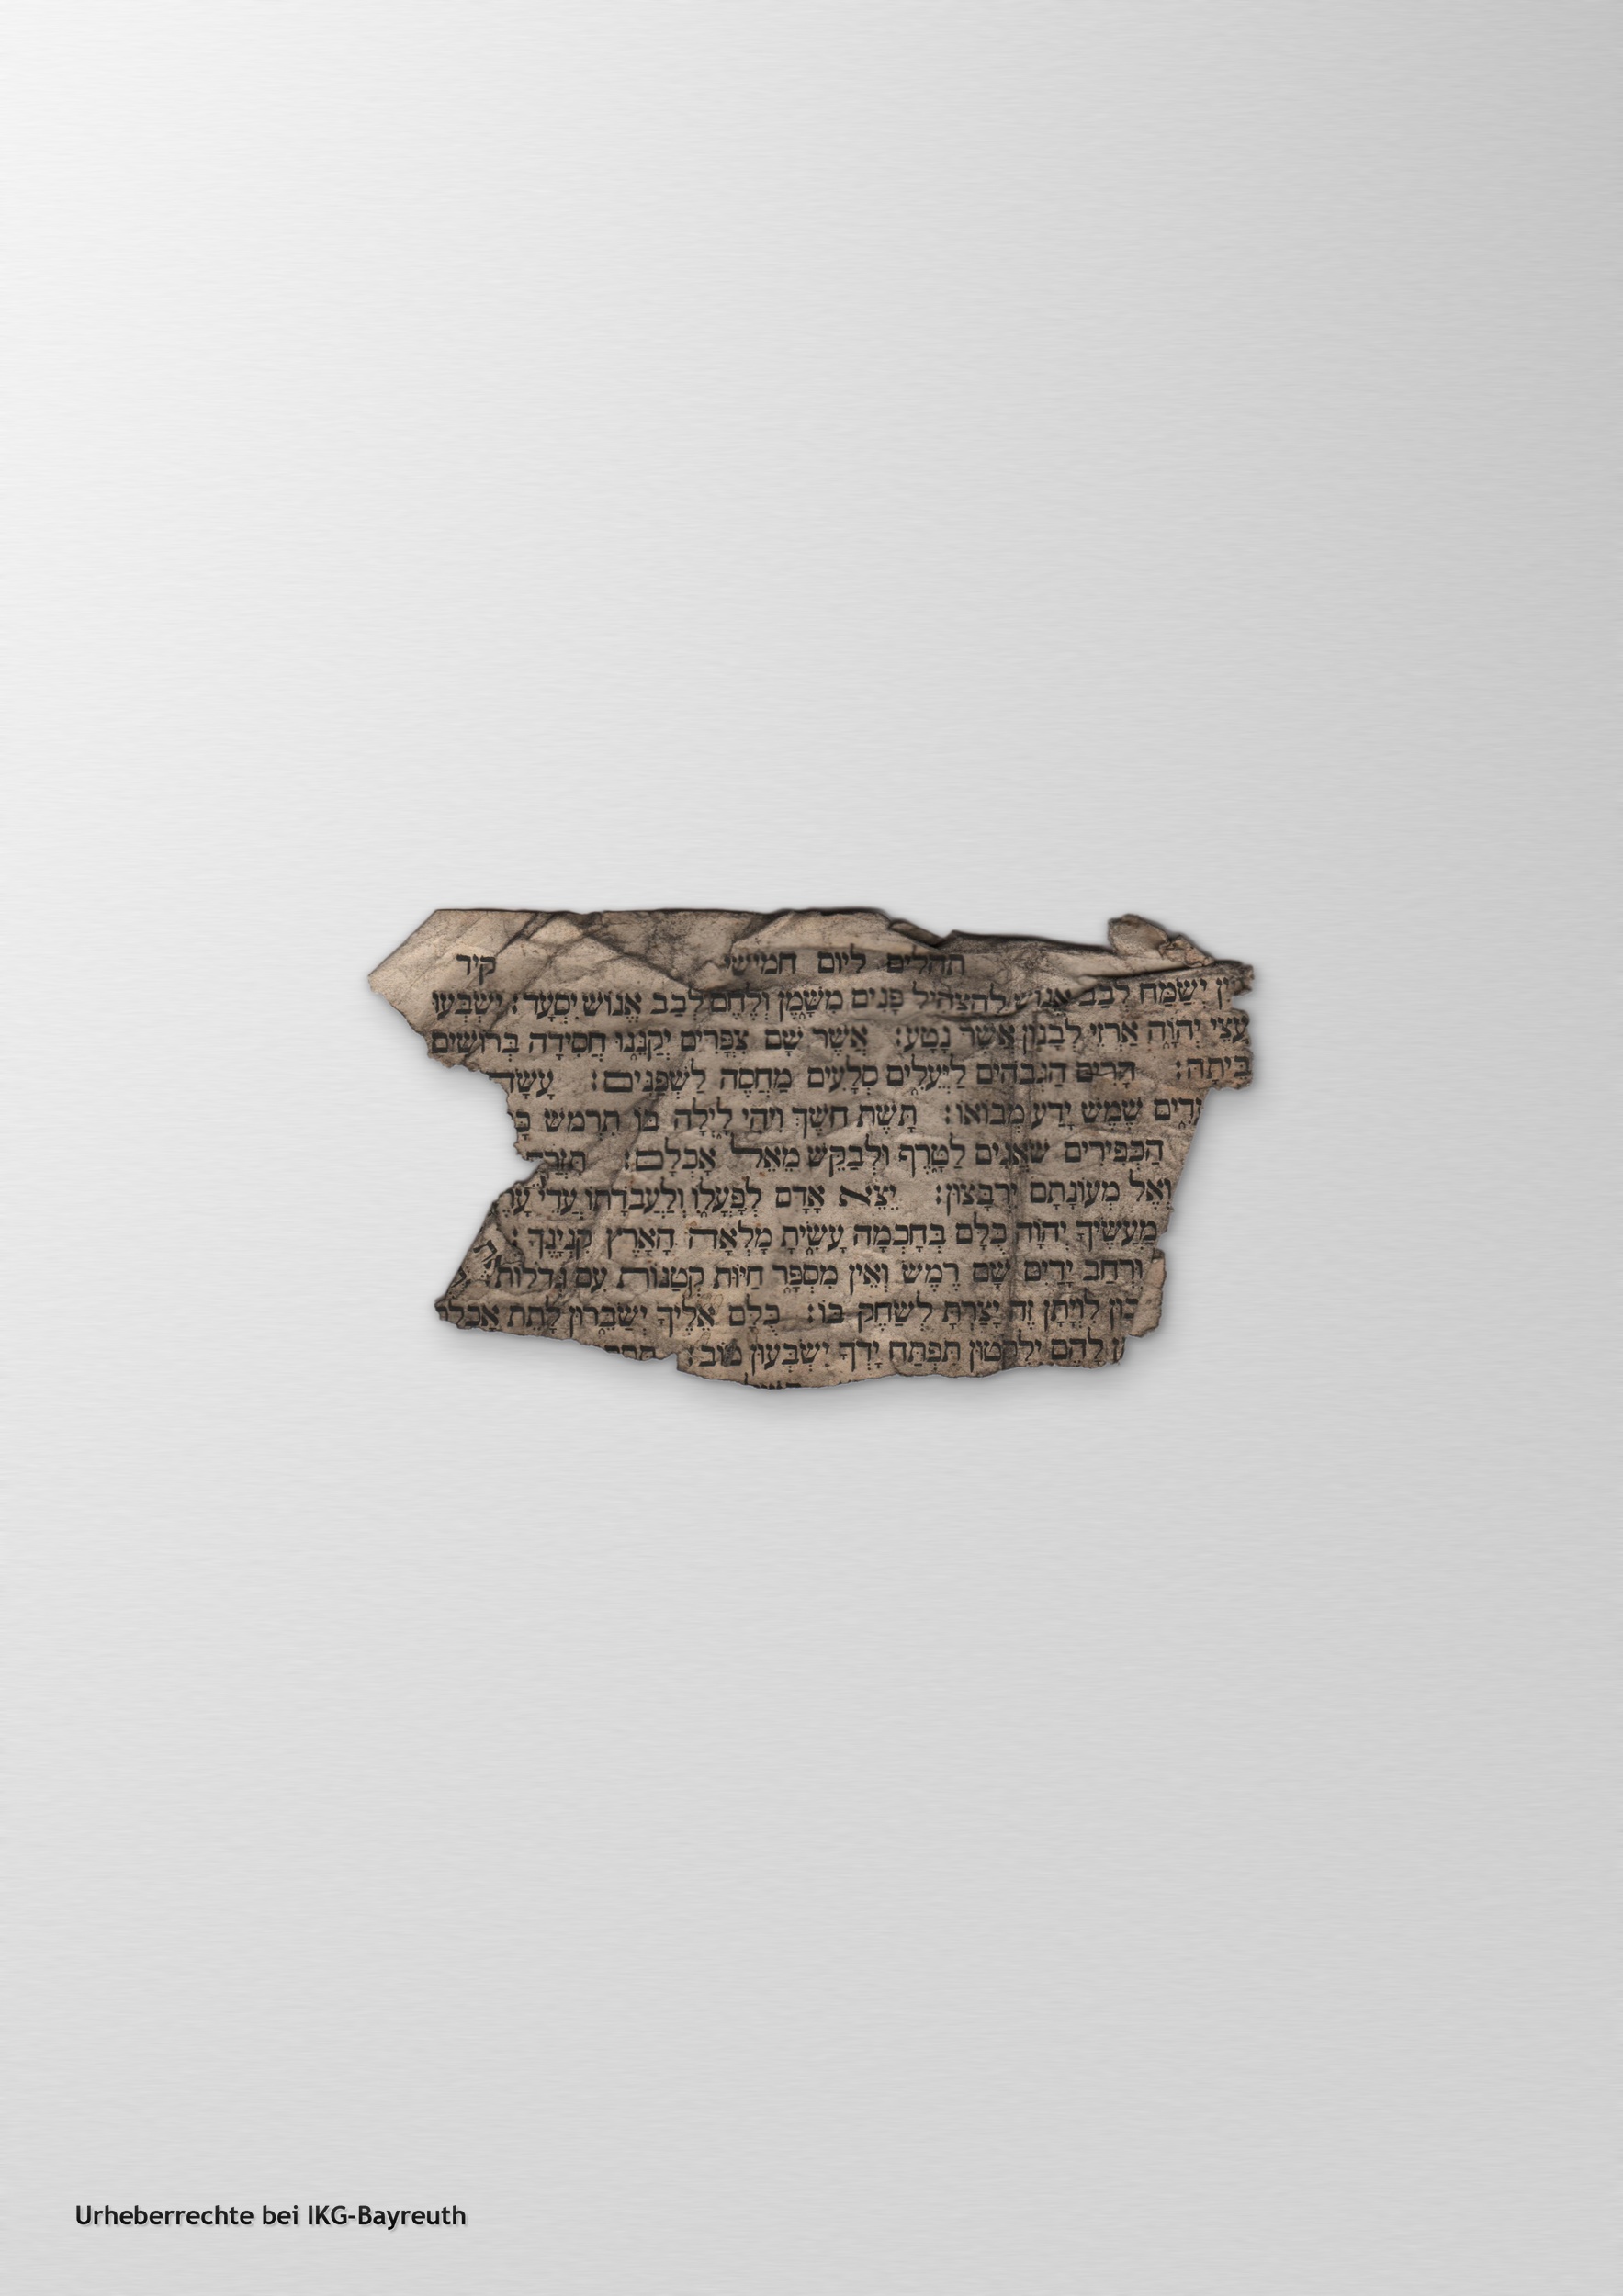 תהלים ליום חמישי קיר
יִשַׂמַּח לְבַב אֱנוֹשׁ לְהַצְהִיל פָּנִים מִשָּׁמֶן וְלֶחֶם לְבַב אֱנוֹשׁ יִסְעָד: יִשְׂבְּעוּ
עֲצֵי יְהוָֹה אַרְזֵי לְבָנוֹן אֲשֶׁר נָטָע: אֲשֶׁר שָׁם צִפֳּרִים יְקַנֵּנוּ חֲסִידָה בְּרוֹשִׁים
בֵּיתָהּ: הָרִים הַגְּבֹהִים לַיְּעֵלִים סְלָעִים מַחְסֶה לַשְׁפַנִּים: עָשָׂה
שֶׁמֶשׁ יָדַע מְבוֹאוֹ: תָּשֶׁת חֹשֶׁךְ וִיהִי לָיְלָה בּוֹ תִרְמֹשׂ
הַכְּפִירִים שֹׁאֲגִים לַטָּרֶף וּלְבַקֵּשׁ מֵאֵל אָכְלָם:
וְאֶל מְעוֹנֹתָם יִרְבָּצוּן: יֵצֵא אָדָם לְפָעֳלוֹ וְלַעֲבֹדָתוֹ עֲדֵי
מַעֲשֶׂיךָ יְהוָֹה כֻּלָּם בְּחָכְמָה עָשִׂיתָ מָלְאָה הָאָרֶץ קִנְיָנֶךָ:
וּרְחַב יָדַיִם שָׁם רֶמֶשׂ וְאֵין מִסְפָּר חַיּוֹת קְטַנּוֹת עִם גְּדֹלוֹת:
לִוְיָתָן זֶה יָצַרְתָּ לְשַׂחֶק בּוֹ: כֻּלָּם אֵלֶיךָ יְשַׂבֵּרוּן לָתֵת אָכְלָם
לָהֶם יִלְקֹטוּן תִּפְתַּח יָדְךָ יִשְׂבְּעוּן טוֹב:
Urheberrechte bei IKG-Bayreuth